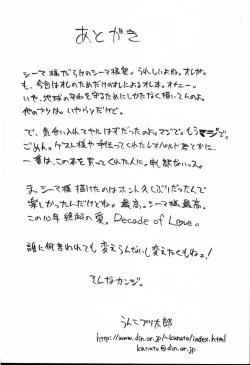 あとがき
シーマ様だらけのシーマ様本。うれしいよね。オレが。
も、今回はオレのためだけのオレによるオレ本。オナニー。
いや、地球の平和を守るためにしかたなく描いてんのよ。
他のフリは。いやウソだけど。
で、気合い入れてヤルはずだったのよ。マジで。もうマジで。
ごめん。ゲスト様や手伝ってくれたレオパルド君とかに、
一番は、この本を買ってくれた人に。申し訳ないっス。
ま、シーマ様描けたのはホント久しぶりだったんで
楽しかったんだけどね。最高。シーマ様最高。
この10年絶頂の愛。Decade of Love。
誰に何言われても変えらんないし変えたくもねェ!
そんなカンジ。
うんこプリ太郎
http://www.din.or.jp/~kanato/index.html
kanato@din.or.jp